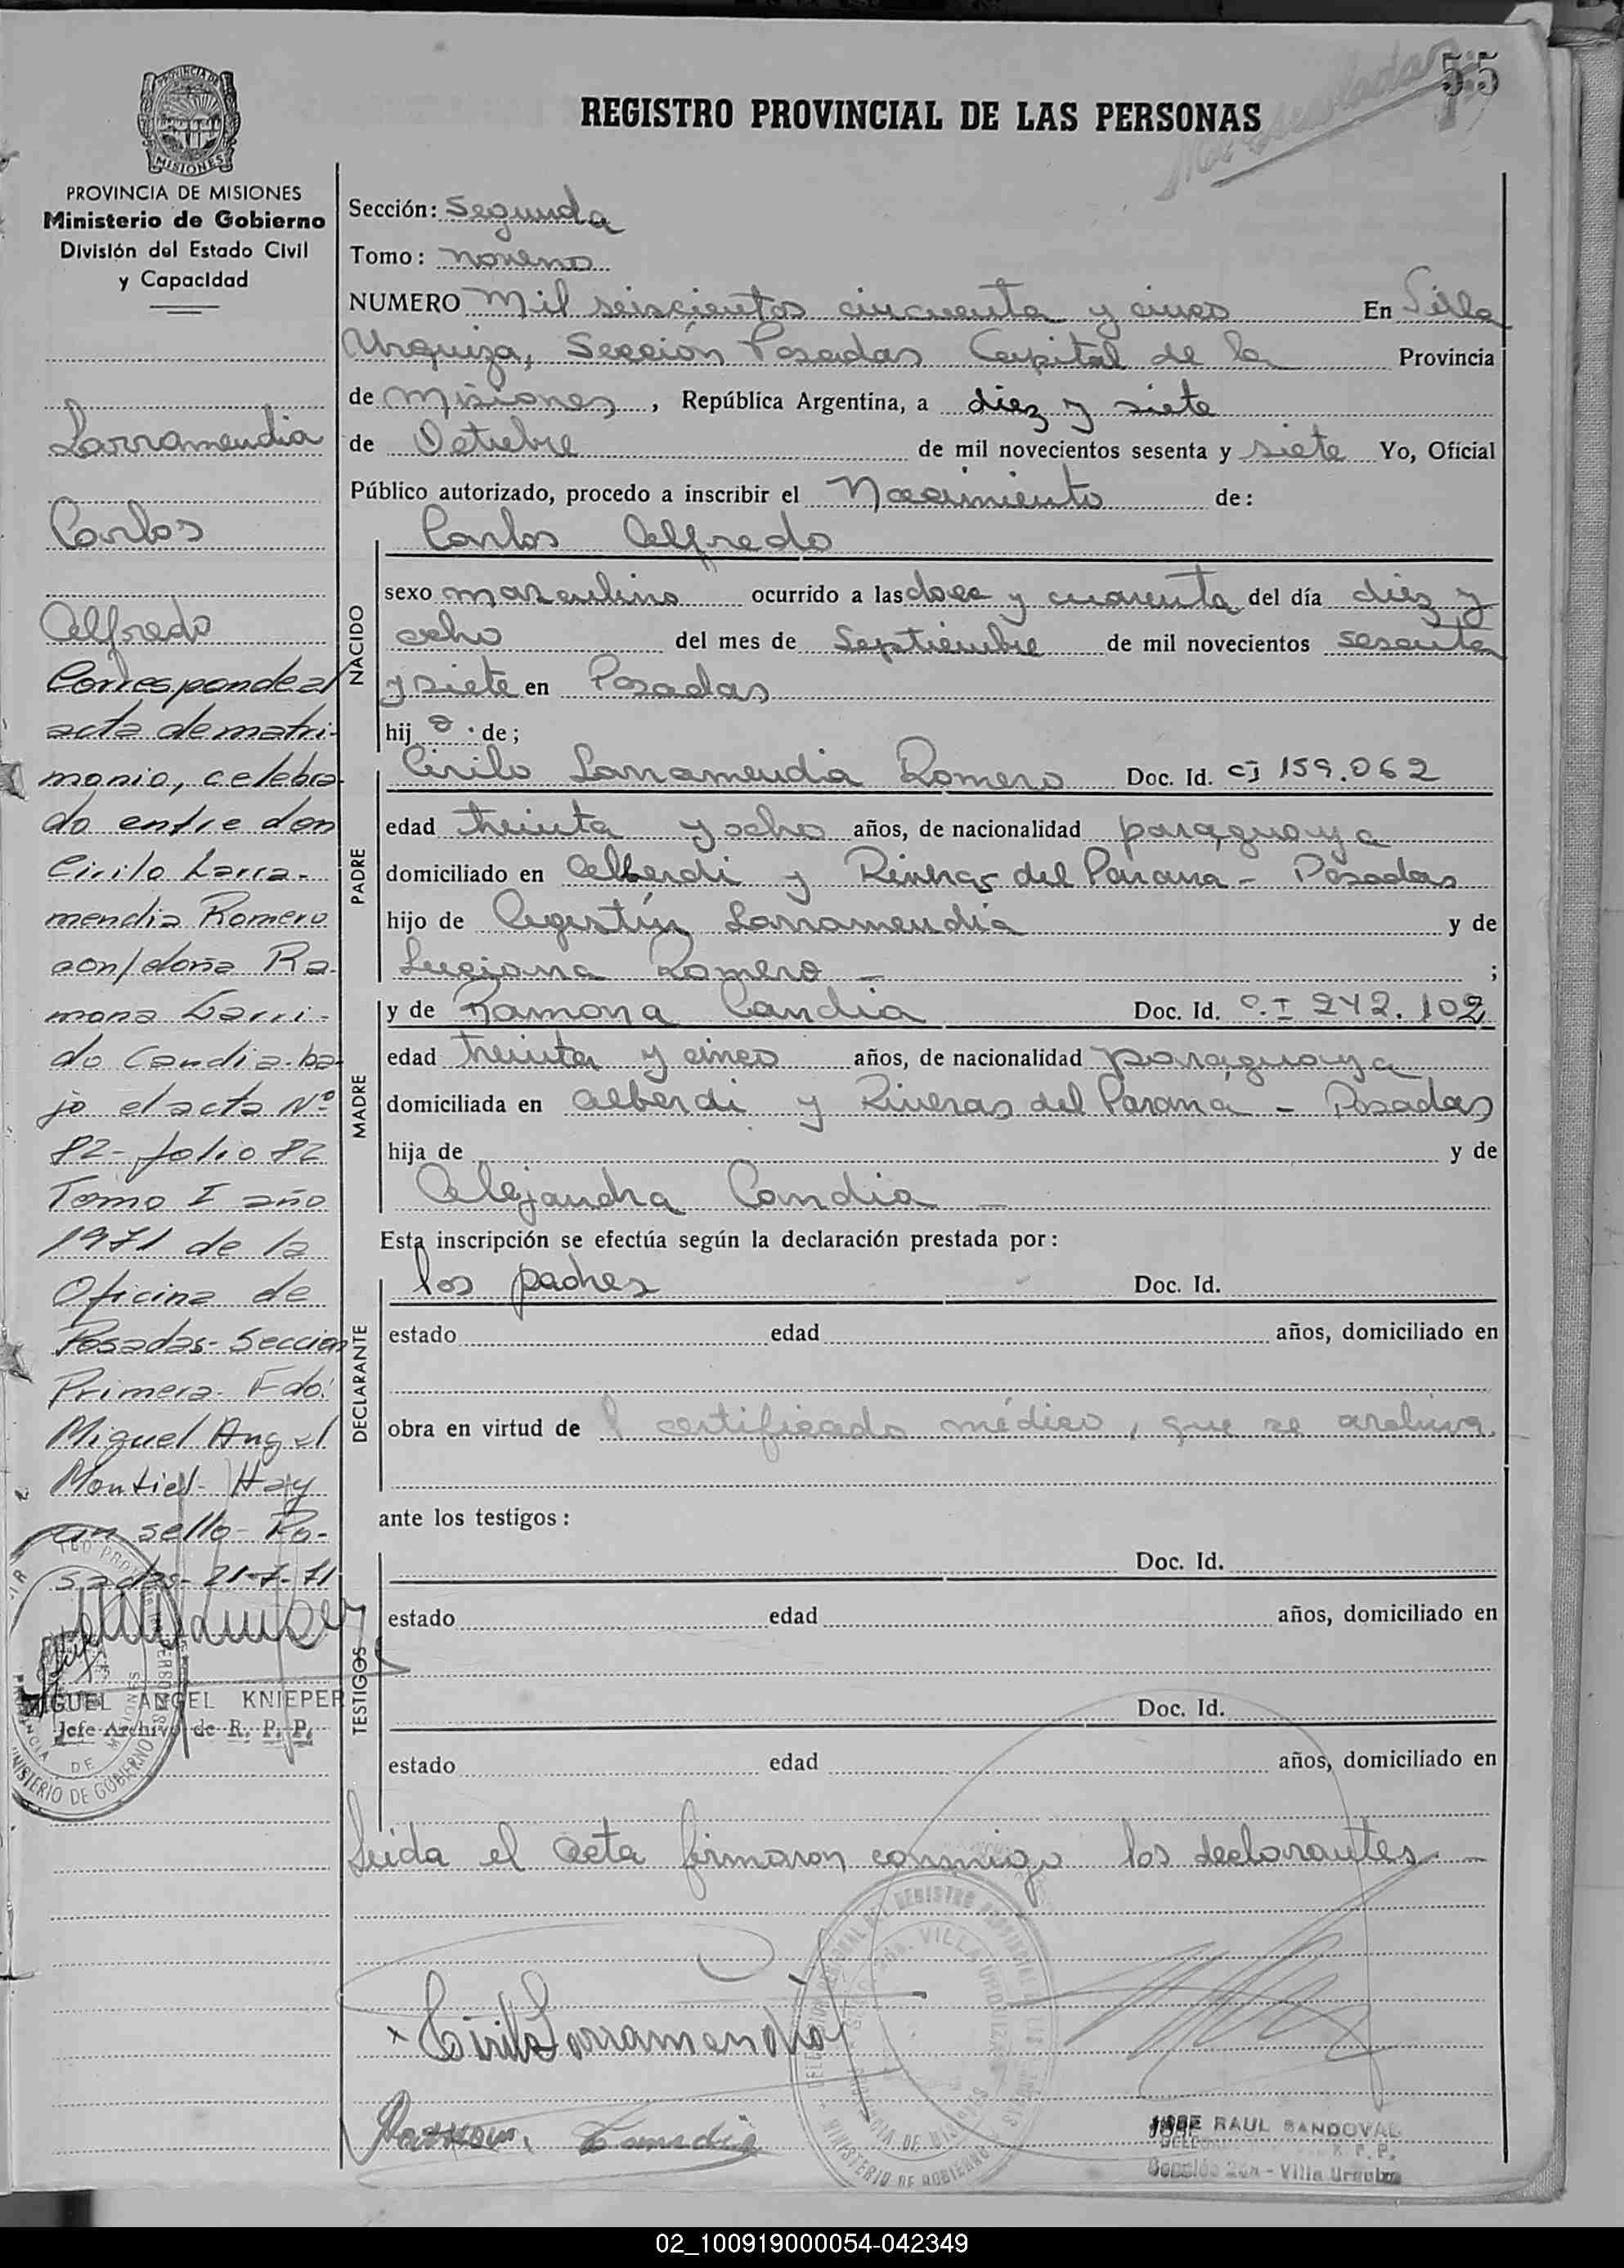 55
REGISTRO PROVINCIAL DE LAS PERSONAS
PROVINCIA DE MISIONES
Ministerio de Gobierno
División del Estado Civil
y Capacidad
Larramendia
Carlos
Alfredo
Corresponde al
acta de matri-
monio, celebra-
do entre don
Cirilo Larra-
mendia Romero
con/doña Ra-
mona Garri-
do Candia-ba-
jo el acta Nº
82- folio 82
Tomo I año
1971 de la
Oficina de
Posadas- Seccion
Primera- Fdo:
Miguel Angel
Montiel- Hay
un sello- Po-
sadas- 21-7-71
MIGUEL ANGEL KNIEPER
Jefe Archivo de R. P. P.
Sección: Segunda
Tomo: noveno
NUMERO Mil seiscientos cincuenta y cinco En Villa
Urquiza, Sección Posadas Capital de la Provincia
de Misiones, República Argentina, a diez y siete
de Octubre de mil novecientos sesenta y siete Yo, Oficial
Público autorizado, procedo a inscribir el Nacimiento de:
NACIDO
Carlos Alfredo
sexo masculino ocurrido a las doce y cuarenta del día diez y
ocho del mes de Septiembre de mil novecientos sesenta
y siete en Posadas
hijo de;
PADRE
Cirilo Larramendia Romero Doc. Id. CI 159.062
edad treinta y ocho años, de nacionalidad paraguaya
domiciliado en Alberdi y Riveras del Parana - Posadas
hijo de Agustín Larramendia y de
Luciana Romero - ;
MADRE
y de Ramona Candia Doc. Id. C.I 242.102
edad treinta y cinco años, de nacionalidad paraguaya
domiciliada en Alberdi y Riveras del Paraná - Posadas
hija de y de
Alejandra Candia -
Esta inscripción se efectúa según la declaración prestada por:
DECLARANTE
los padres Doc. Id.
estado edad años, domiciliado en
obra en virtud de l certificado médico, que se archiva.
ante los testigos:
TESTIGOS
Doc. Id.
estado edad años, domiciliado en
Doc. Id.
estado edad años, domiciliado en
Leida el Acta firmaron conmigo los declarantes -
x Cirilo Larramendia
Ramona Candia
JOSE RAUL SANDOVAL
Sección 2da - Villa Urquiza
02_100919000054-042349